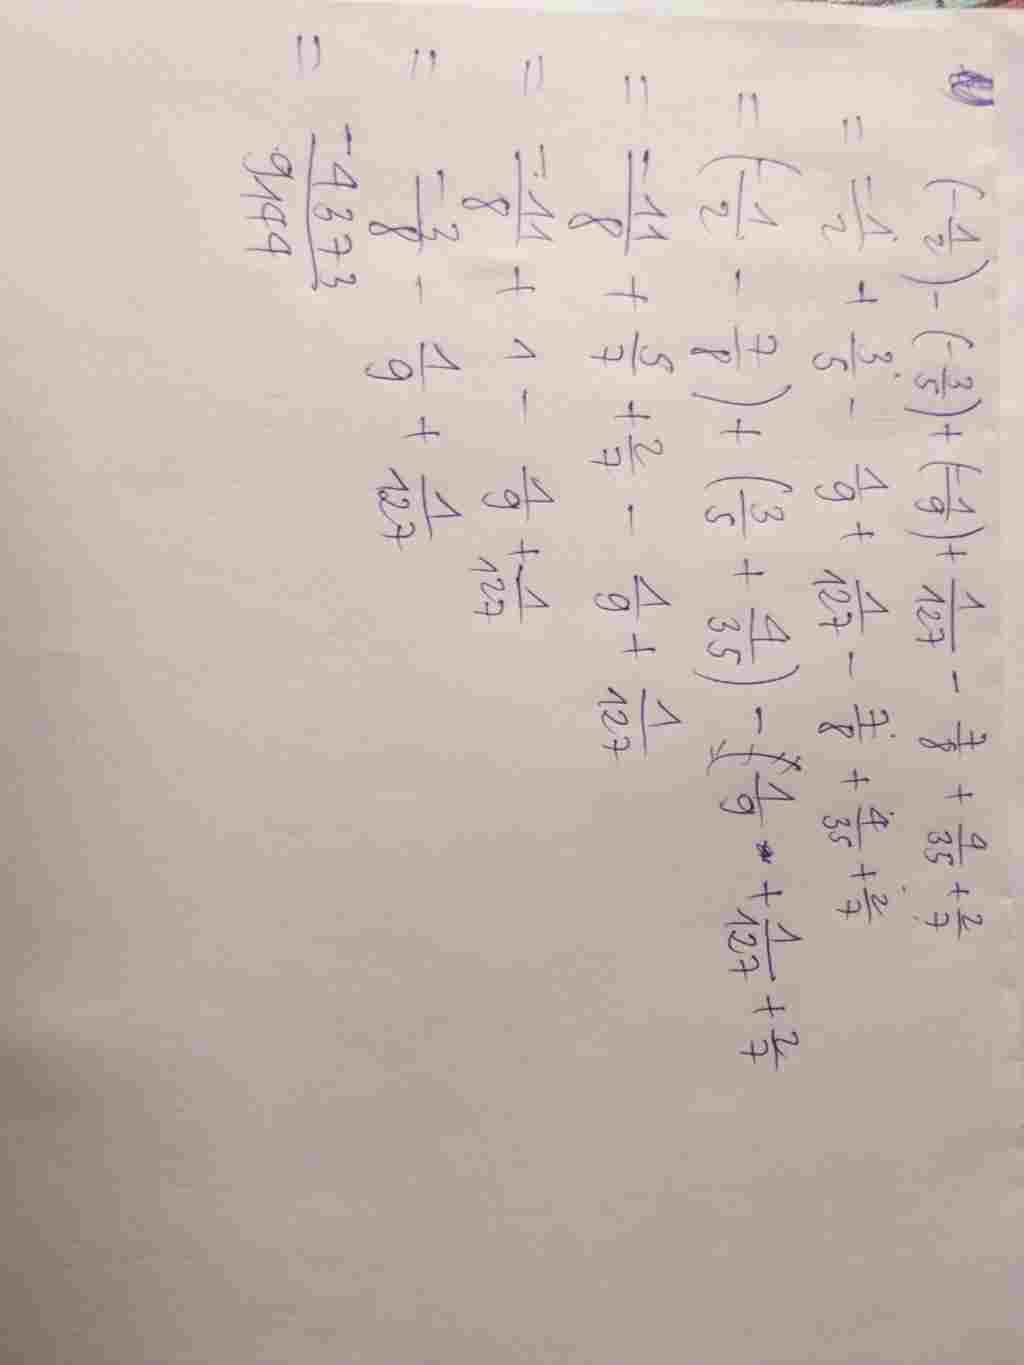 (-1/2) - (-3/5) + (-1/9) + 1/127 - 7/8 + 4/35 + 2/7
= -1/2 + 3/5 - 1/9 + 1/127 - 7/8 + 4/35 + 2/7
= (-1/2 - 7/8) + (3/5 + 4/35) - (1/9 + 1/127 + 2/7
= -11/8 + 5/7 + 2/7 - 1/9 + 1/127
= -11/8 + 1 - 1/9 + 1/127
= -3/8 - 1/9 + 1/127
= -4373/9144